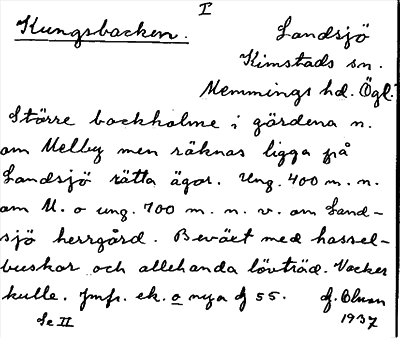 I
Kungsbacken.
Landsjö
Kimstads sn.
Memmings hd. Ögl.
Större backholme i gärdena n.
om Melby men räknas ligga på
Landsjö rätta ägor. Ung. 400 m. n.
om M. o ung. 700 m. n. v. om Land-
sjö herrgård. Beväxt med hassel-
buskar och allehanda lövträd. Vacker
kulle. Jmfr. ek. o nya 55.
1937
Se II